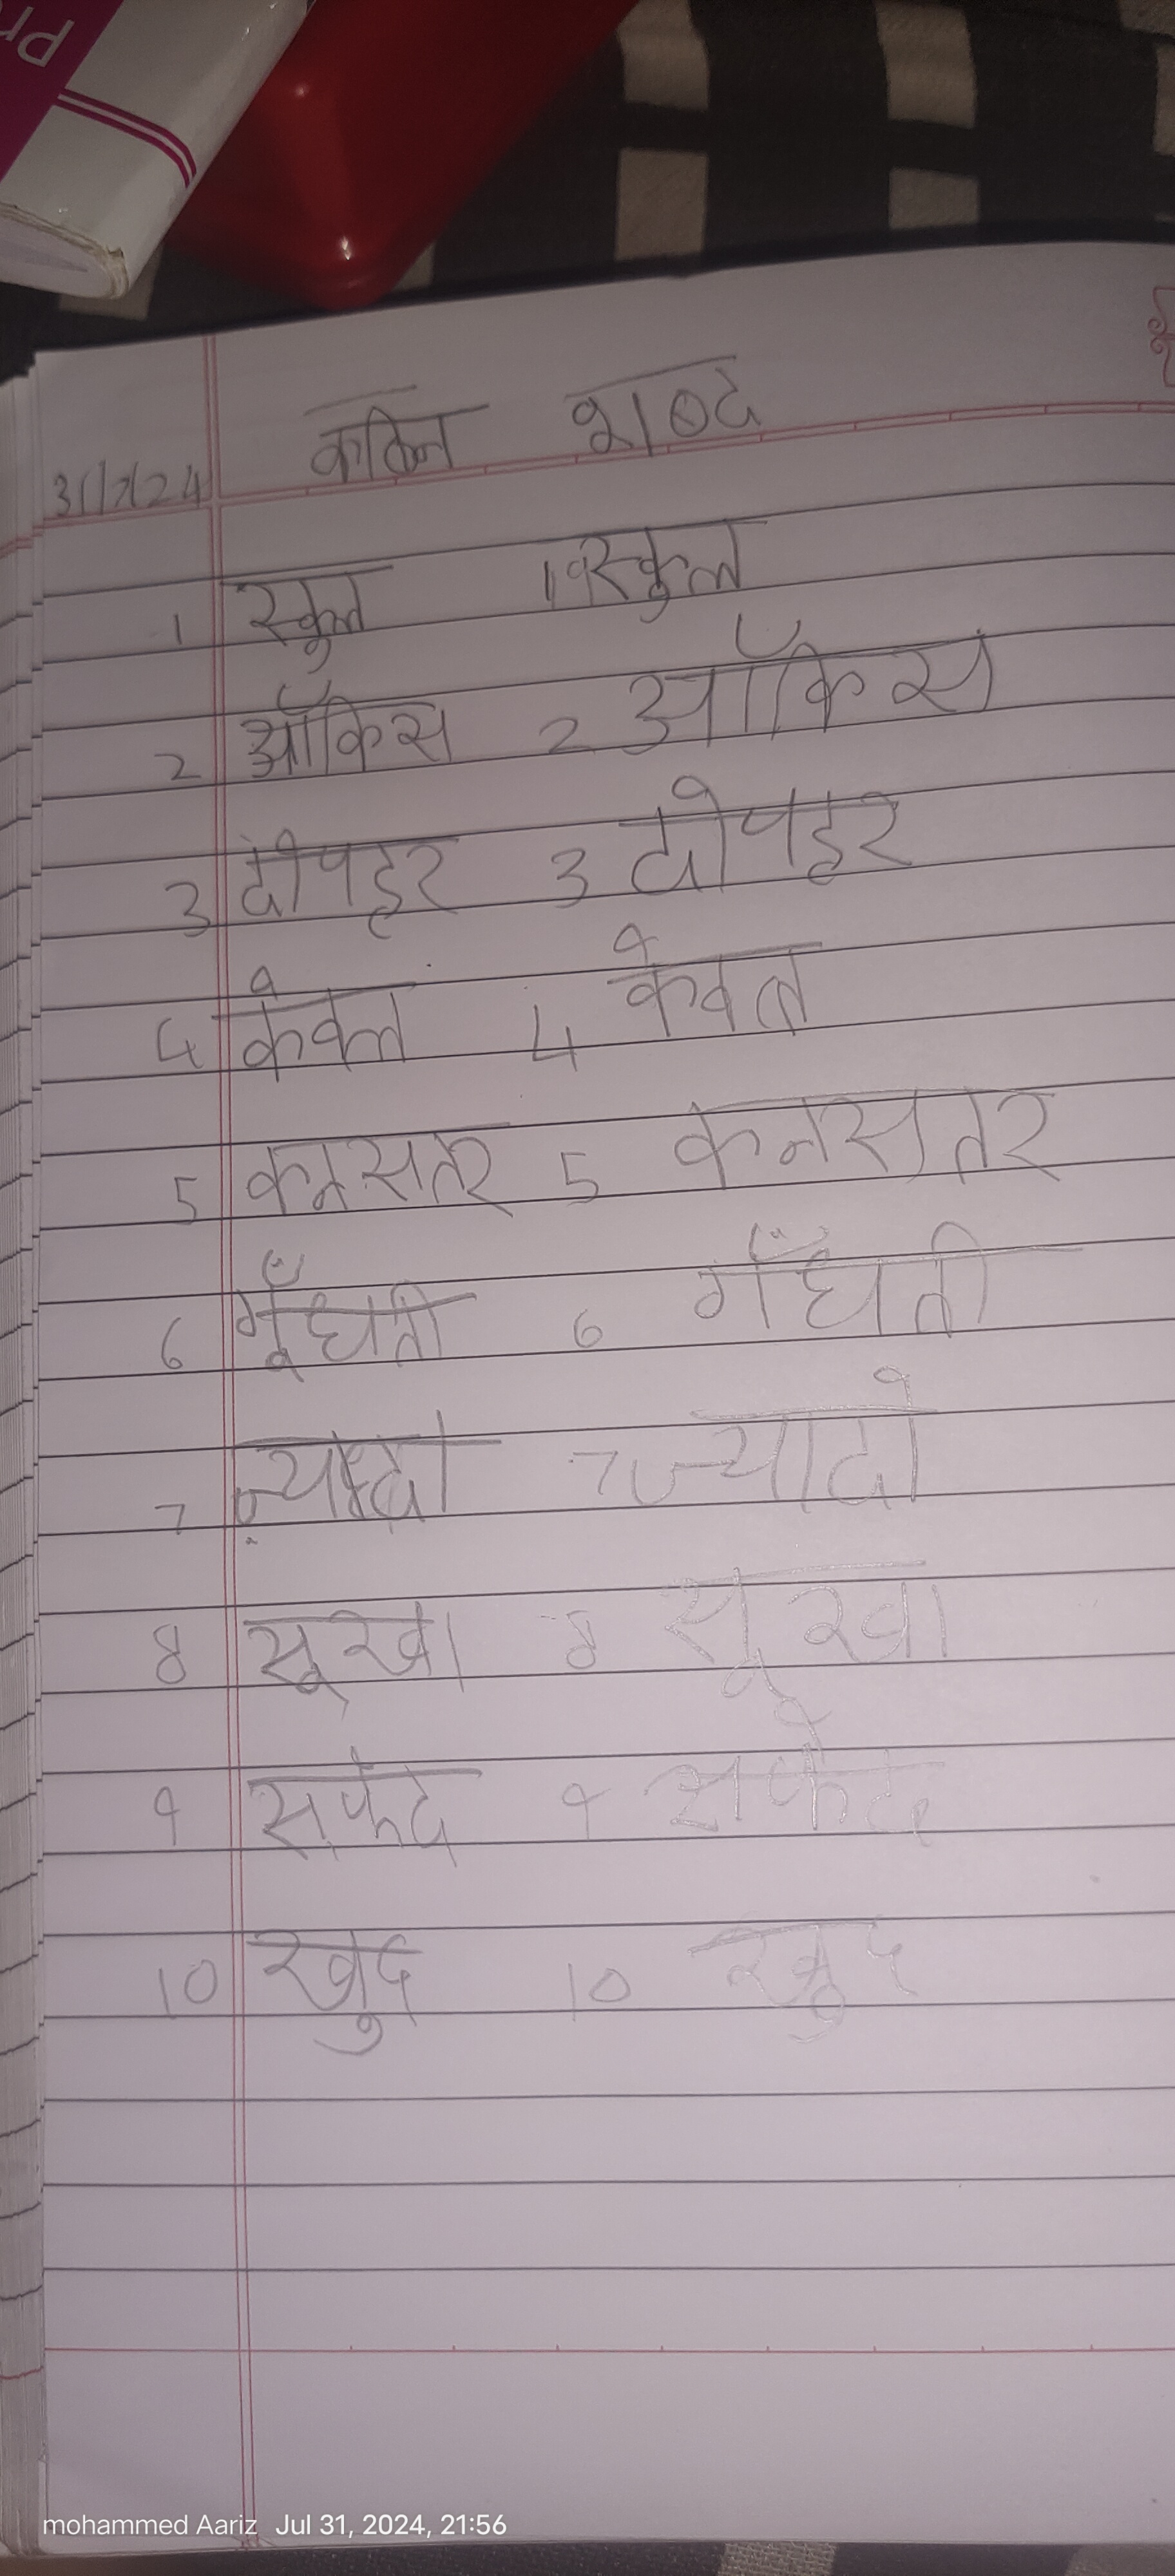 Pr
कठिन शब्द
31/7/24
1 स्कुल 1 स्कुल
2 ऑफिस 2 ऑफिस
3 दोपहर 3 दोपहर
4 केवल 4 केवल
5 कनसतर 5 कनसतर
6 गूँधती 6 गँधती
7 ज्यादा 7 ज्यादो
8 सूखा 8 सूखा
9 सफेद 9 सफेद
10 खुद 10 खुद
mohammed Aariz Jul 31, 2024, 21:56